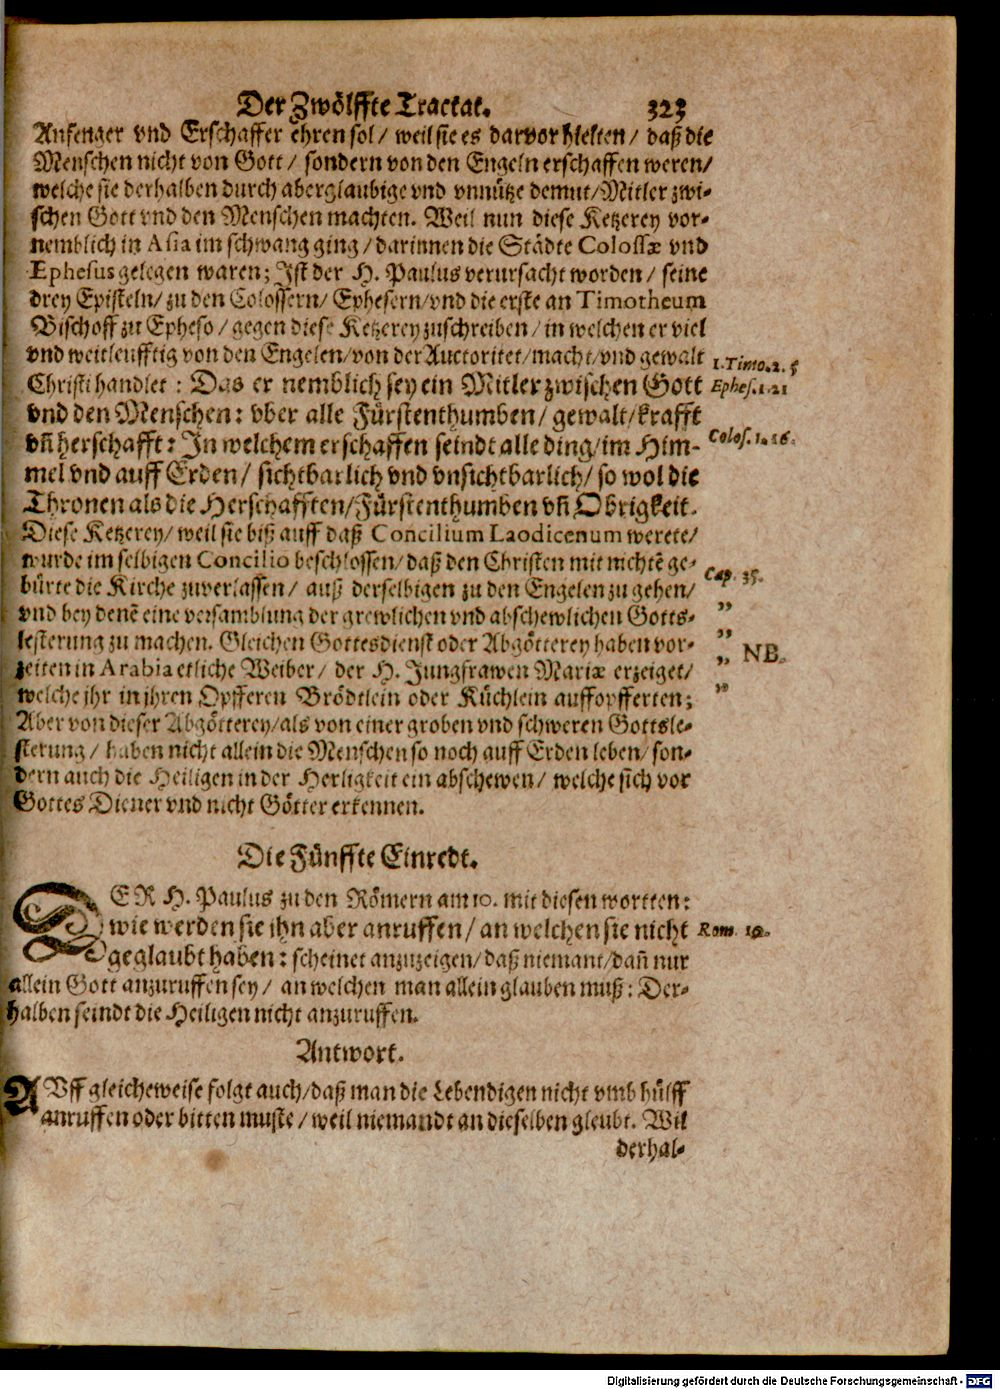 Der Zwölffte Tractat. 323
Anfenger vnd Erschaffer ehren sol / weil sie es darvor hielten / daß die
Menschen nicht von Gott / sondern von den Engeln erschaffen weren/
welche sie derhalben durch aberglaubige vnd vnnütze demut/Mitler zwi-
schen Gott vnd den Menschen machten. Weil nun diese Ketzerey vor-
nemblich in Asia im schwang ging / darinnen die Städte Colossæ vnd
Ephesus gelegen waren; Jst der H. Paulus verursacht worden / seine
drey Episteln/ zu den Colossern/ Ephesern/vnd die erste an Timotheum
Bischoff zu Epheso / gegen diese Ketzerey zuschreiben / in welchen er viel
vnd weitleufftig von den Engelen/von der Auctoritet/macht/vnd gewalt 1.Timo.2.5
Christi handlet : Das er nemblich sey ein Mitler zwischen Gott Ephes.1.21
vnd den Menschen: vber alle Fürstenthumben/ gewalt/krafft
vñ herschafft: Jn welchem erschaffen seindt alle ding/im Him- Colos.1.16.
mel vnd auff Erden/ sichtbarlich vnd vnsichtbarlich/ so wol die
Thronen als die Herschafften/Fürstenthumben vñ Obrigkeit.
Diese Ketzerey/ weil sie biß auff daß Concilium Laodicenum werete/
wurde im selbigen Concilio beschlossen/ daß den Christen mit nichtē ge- Cap. 35.
bürte die Kirche zuverlassen/ auß derselbigen zu den Engelen zu gehen/
vnd bey denē eine versamblung der grewlichen vnd abschewlichen Gotts- „
lesterung zu machen. Gleichen Gottesdienst oder Abgötterey haben vor- „
zeiten in Arabia etliche Weiber / der H. Jungfrawen Mariæ erzeiget/ „ NB.
welche jhr in jhren Opfferen Brödtlein oder Küchlein auffopfferten; „
Aber von dieser Abgötterey/als von einer groben vnd schweren Gottsle-
sterung / haben nicht allein die Menschen so noch auff Erden leben/ son-
dern auch die Heiligen in der Herligkeit ein abschewen/ welche sich vor
Gottes Diener vnd nicht Götter erkennen.
Die Fünffte Einredt.
DER H. Paulus zu den Römern am 10. mit diesen wortten:
wie werden sie ihn aber anruffen/ an welchen sie nicht Rom. 10.
geglaubt haben: scheinet anzuzeigen/ daß niemant/dañ nur
allein Gott anzuruffen sey / an welchen man allein glauben muß: Der-
halben seindt die Heiligen nicht anzuruffen.
Antwort.
AVff gleicheweise folgt auch/daß man die Lebendigen nicht vmb hülff
anruffen oder bitten muste / weil niemandt an dieselben gleubt. Wil
derhal-
Digitalisierung gefördert durch die Deutsche Forschungsgemeinschaft - DFG